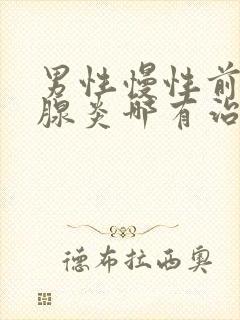 男性慢性前
腺炎哪有治
德布拉西奥